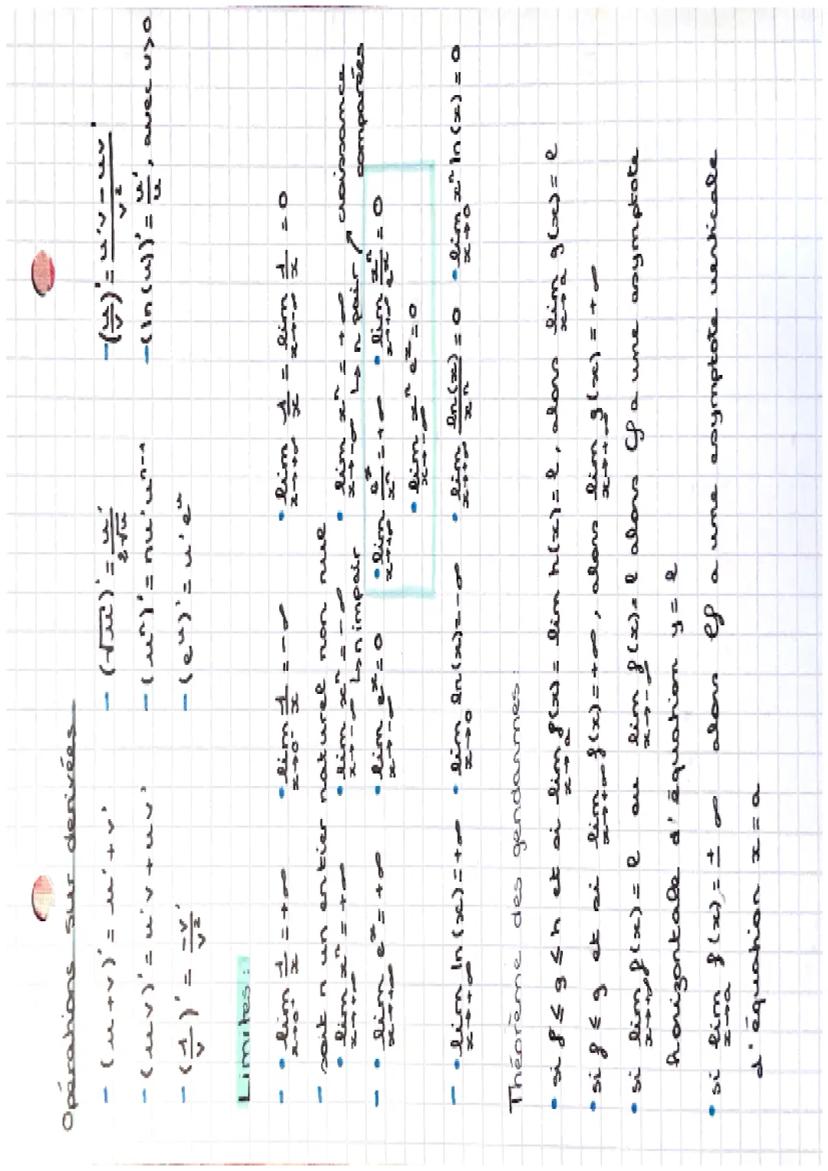 Opérations sur dérivées
- (u+v)' = u'+v' - (√u)' = u'/2√u - (u/v)' = u'v-uv'/v²
- (uv)' = u'v+uv' - (uⁿ)' = nu'uⁿ⁻¹ - (ln(u))' = u'/u, avec u>0
- (1/v)' = -v'/v² - (eᵘ)' = u'eᵘ
Limites :
- • lim x→0⁺ 1/x = +∞ • lim x→0⁻ 1/x = -∞ • lim x→+∞ 1/x = lim x→-∞ 1/x = 0
- soit n un entier naturel non nul
• lim x→+∞ xⁿ = +∞ • lim x→-∞ xⁿ = -∞ ↳ n impair • lim x→-∞ xⁿ = +∞ ↳ n pair croissance comparées
- • lim x→+∞ eˣ = +∞ • lim x→-∞ eˣ = 0 • lim x→+∞ eˣ/xⁿ = +∞ • lim x→+∞ xⁿ/eˣ = 0
• lim x→-∞ xⁿ eˣ = 0
- • lim x→+∞ ln(x) = +∞ • lim x→0 ln(x) = -∞ • lim x→+∞ ln(x)/xⁿ = 0 • lim x→0 xⁿ ln(x) = 0
Théorème des gendarmes :
• si f ≤ g ≤ h et si lim x→a f(x) = lim h(x) = l, alors lim x→a g(x) = l
• si f ≤ g et si lim x→+∞ f(x) = +∞, alors lim x→+∞ g(x) = +∞
• si lim x→+∞ f(x) = l ou lim x→-∞ f(x) = l alors Cf a une asymptote
horizontale d'équation y = l
• si lim x→a f(x) = ± ∞ alors Cf a une asymptote verticale
d'équation x = a